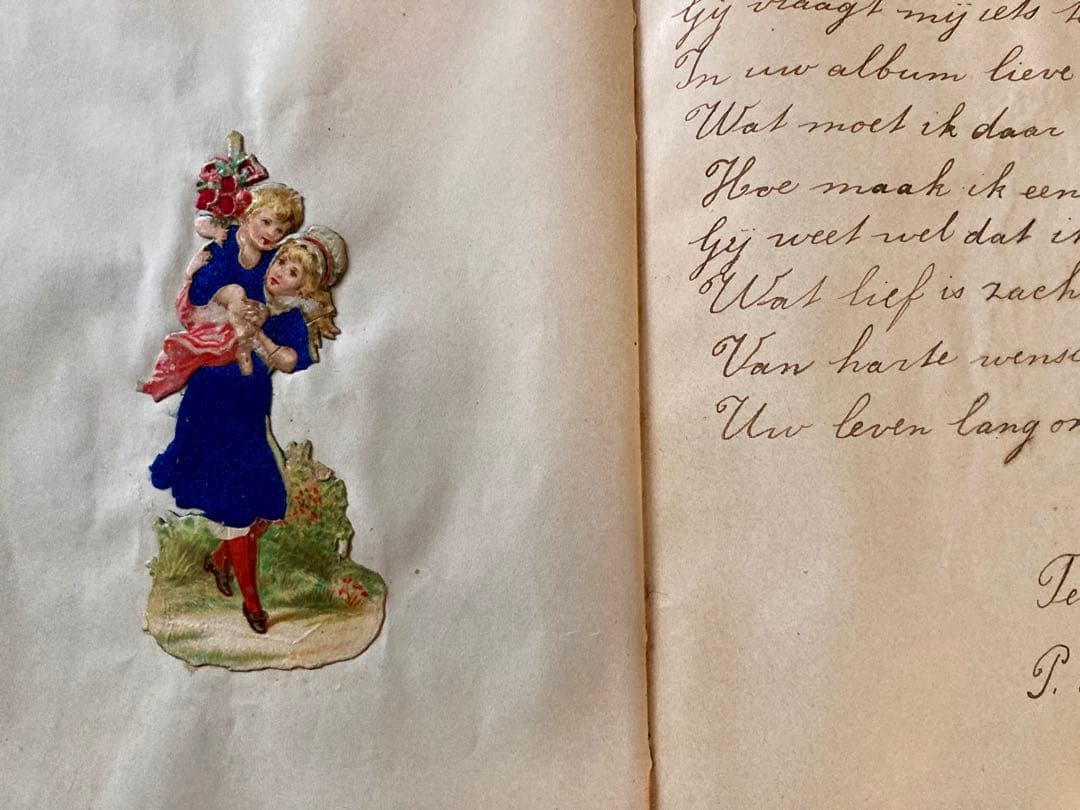 Gij vraagt mij iets
In uw album lieve
Wat moet ik daar
Hoe maak ik een
Gij weet wel dat
Wat lief is zach
Van harte wensc
Uw leven lang
Te
P.